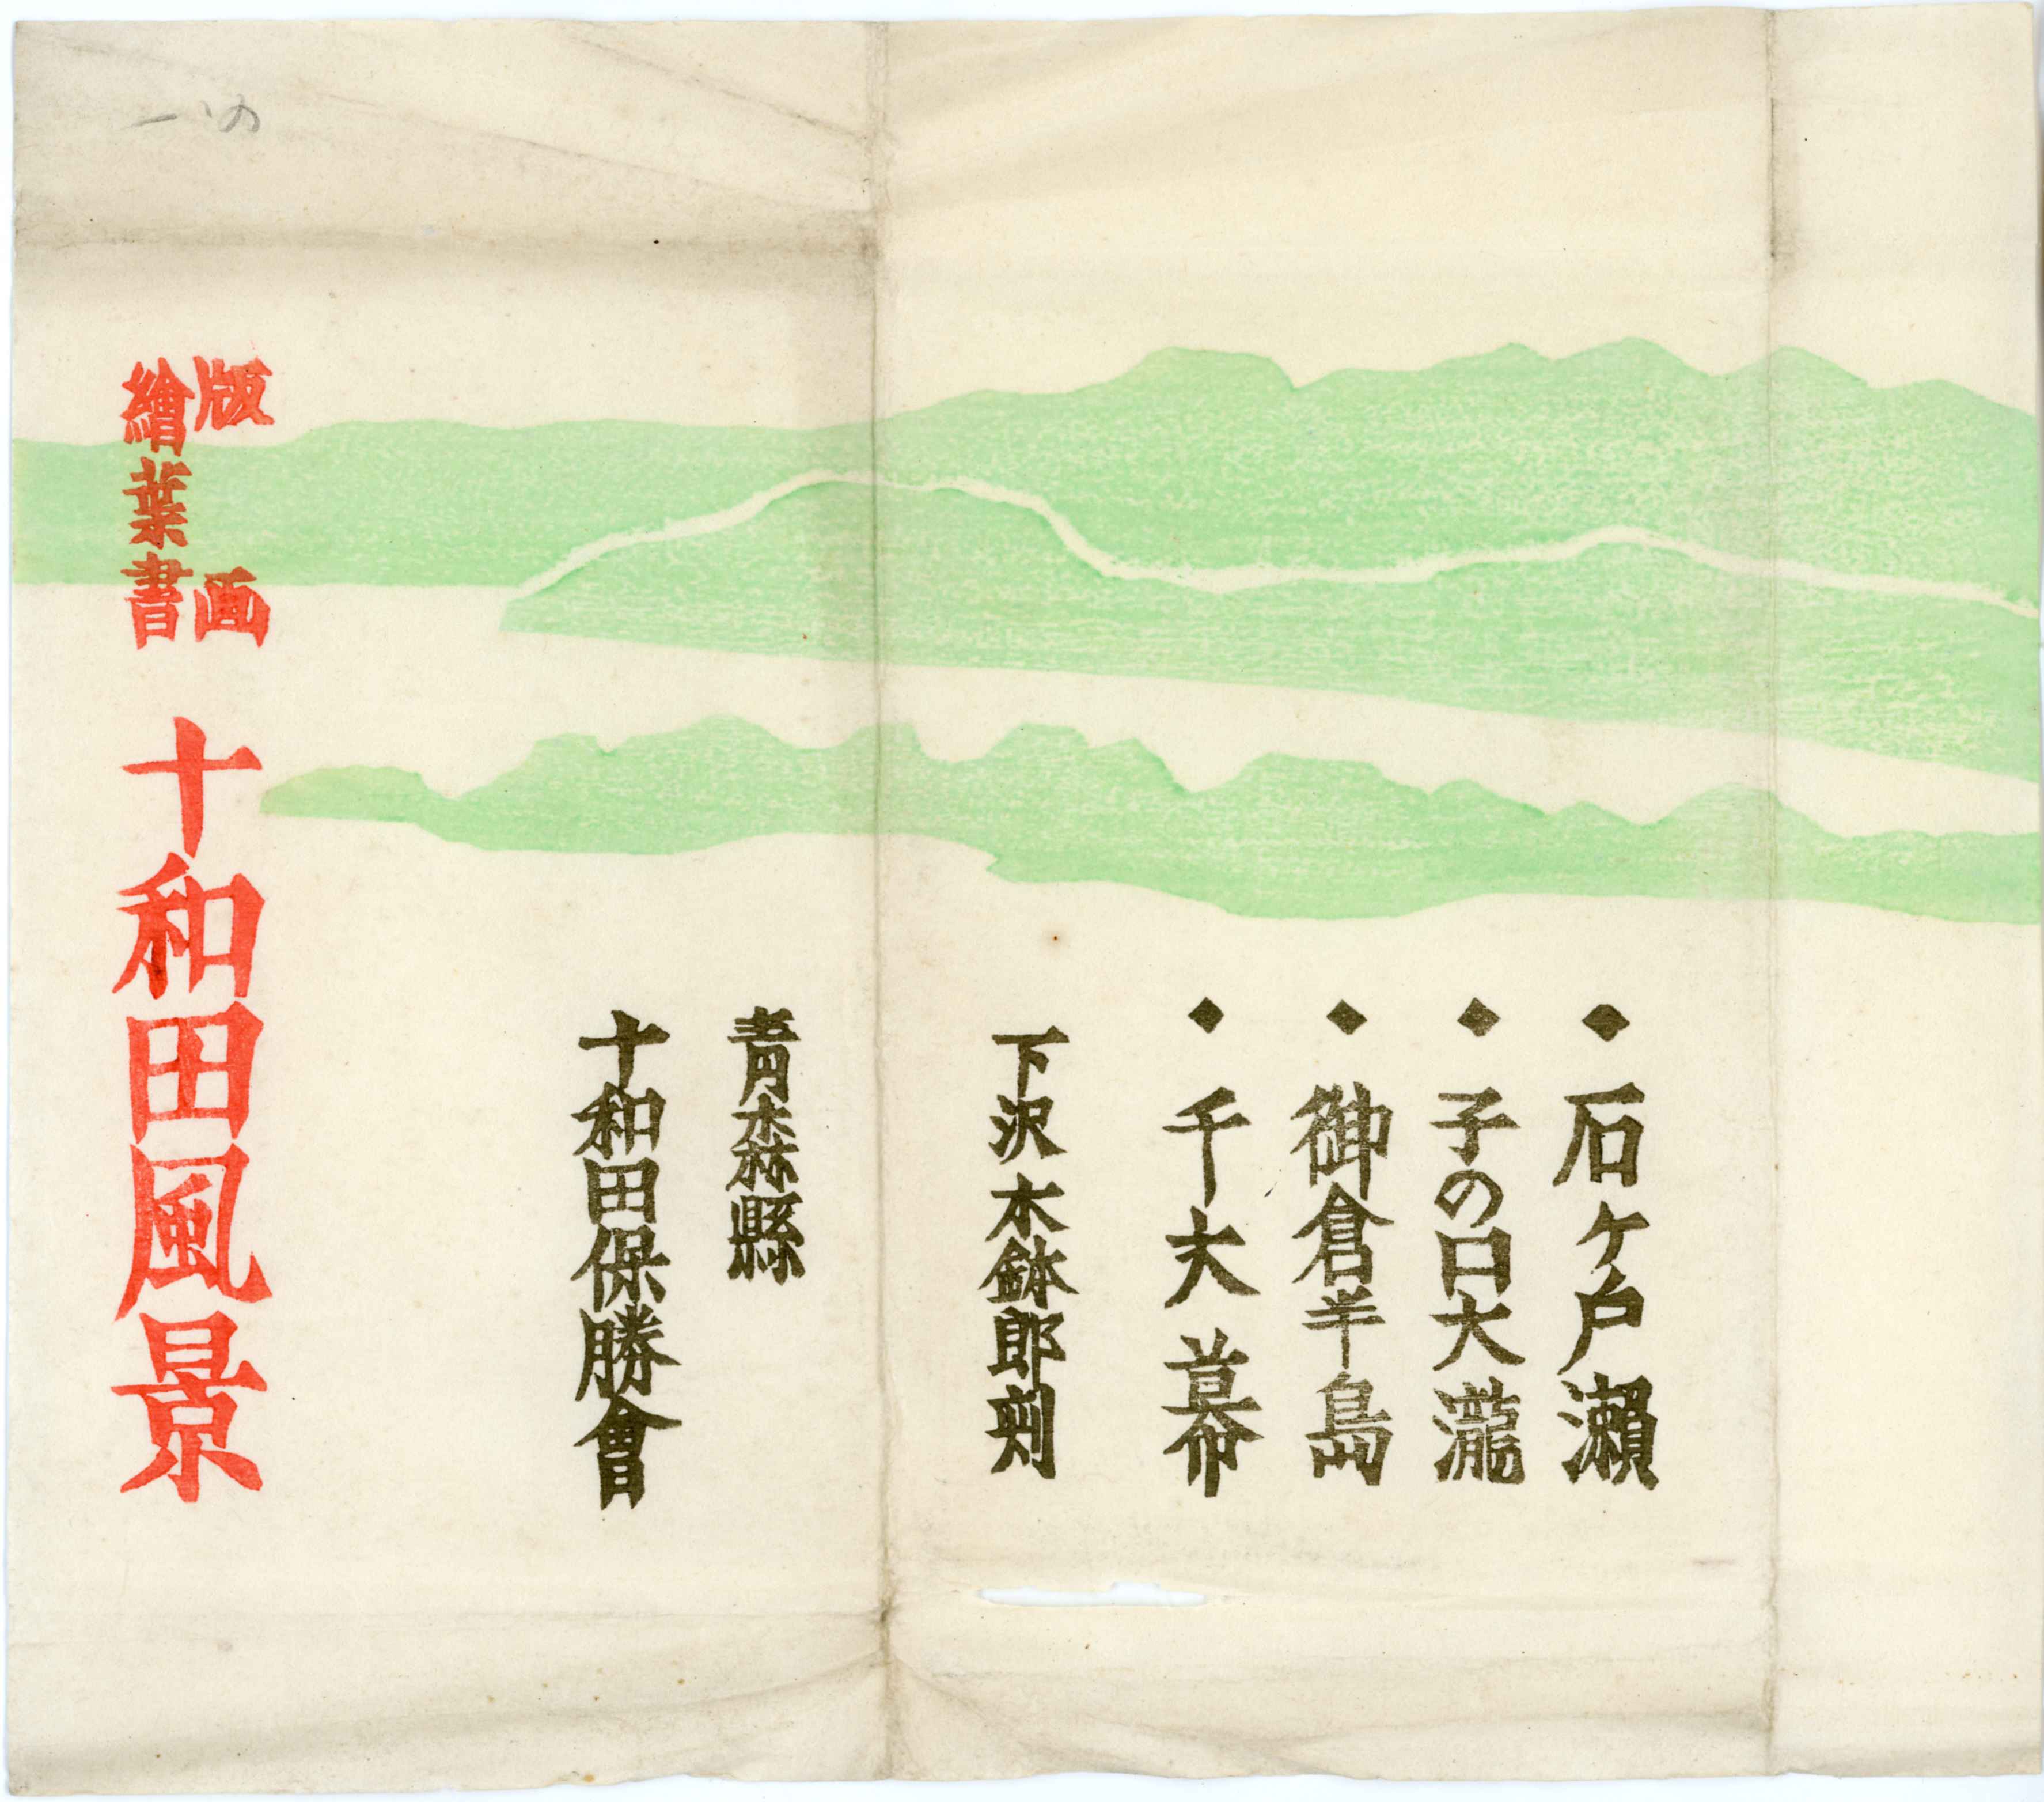 石ヶ戸瀬
子の口大瀧
御倉半島
千大幕
下沢木鉢郎刻
青森縣
十和田保勝會
版画
繪葉書
十和田風景